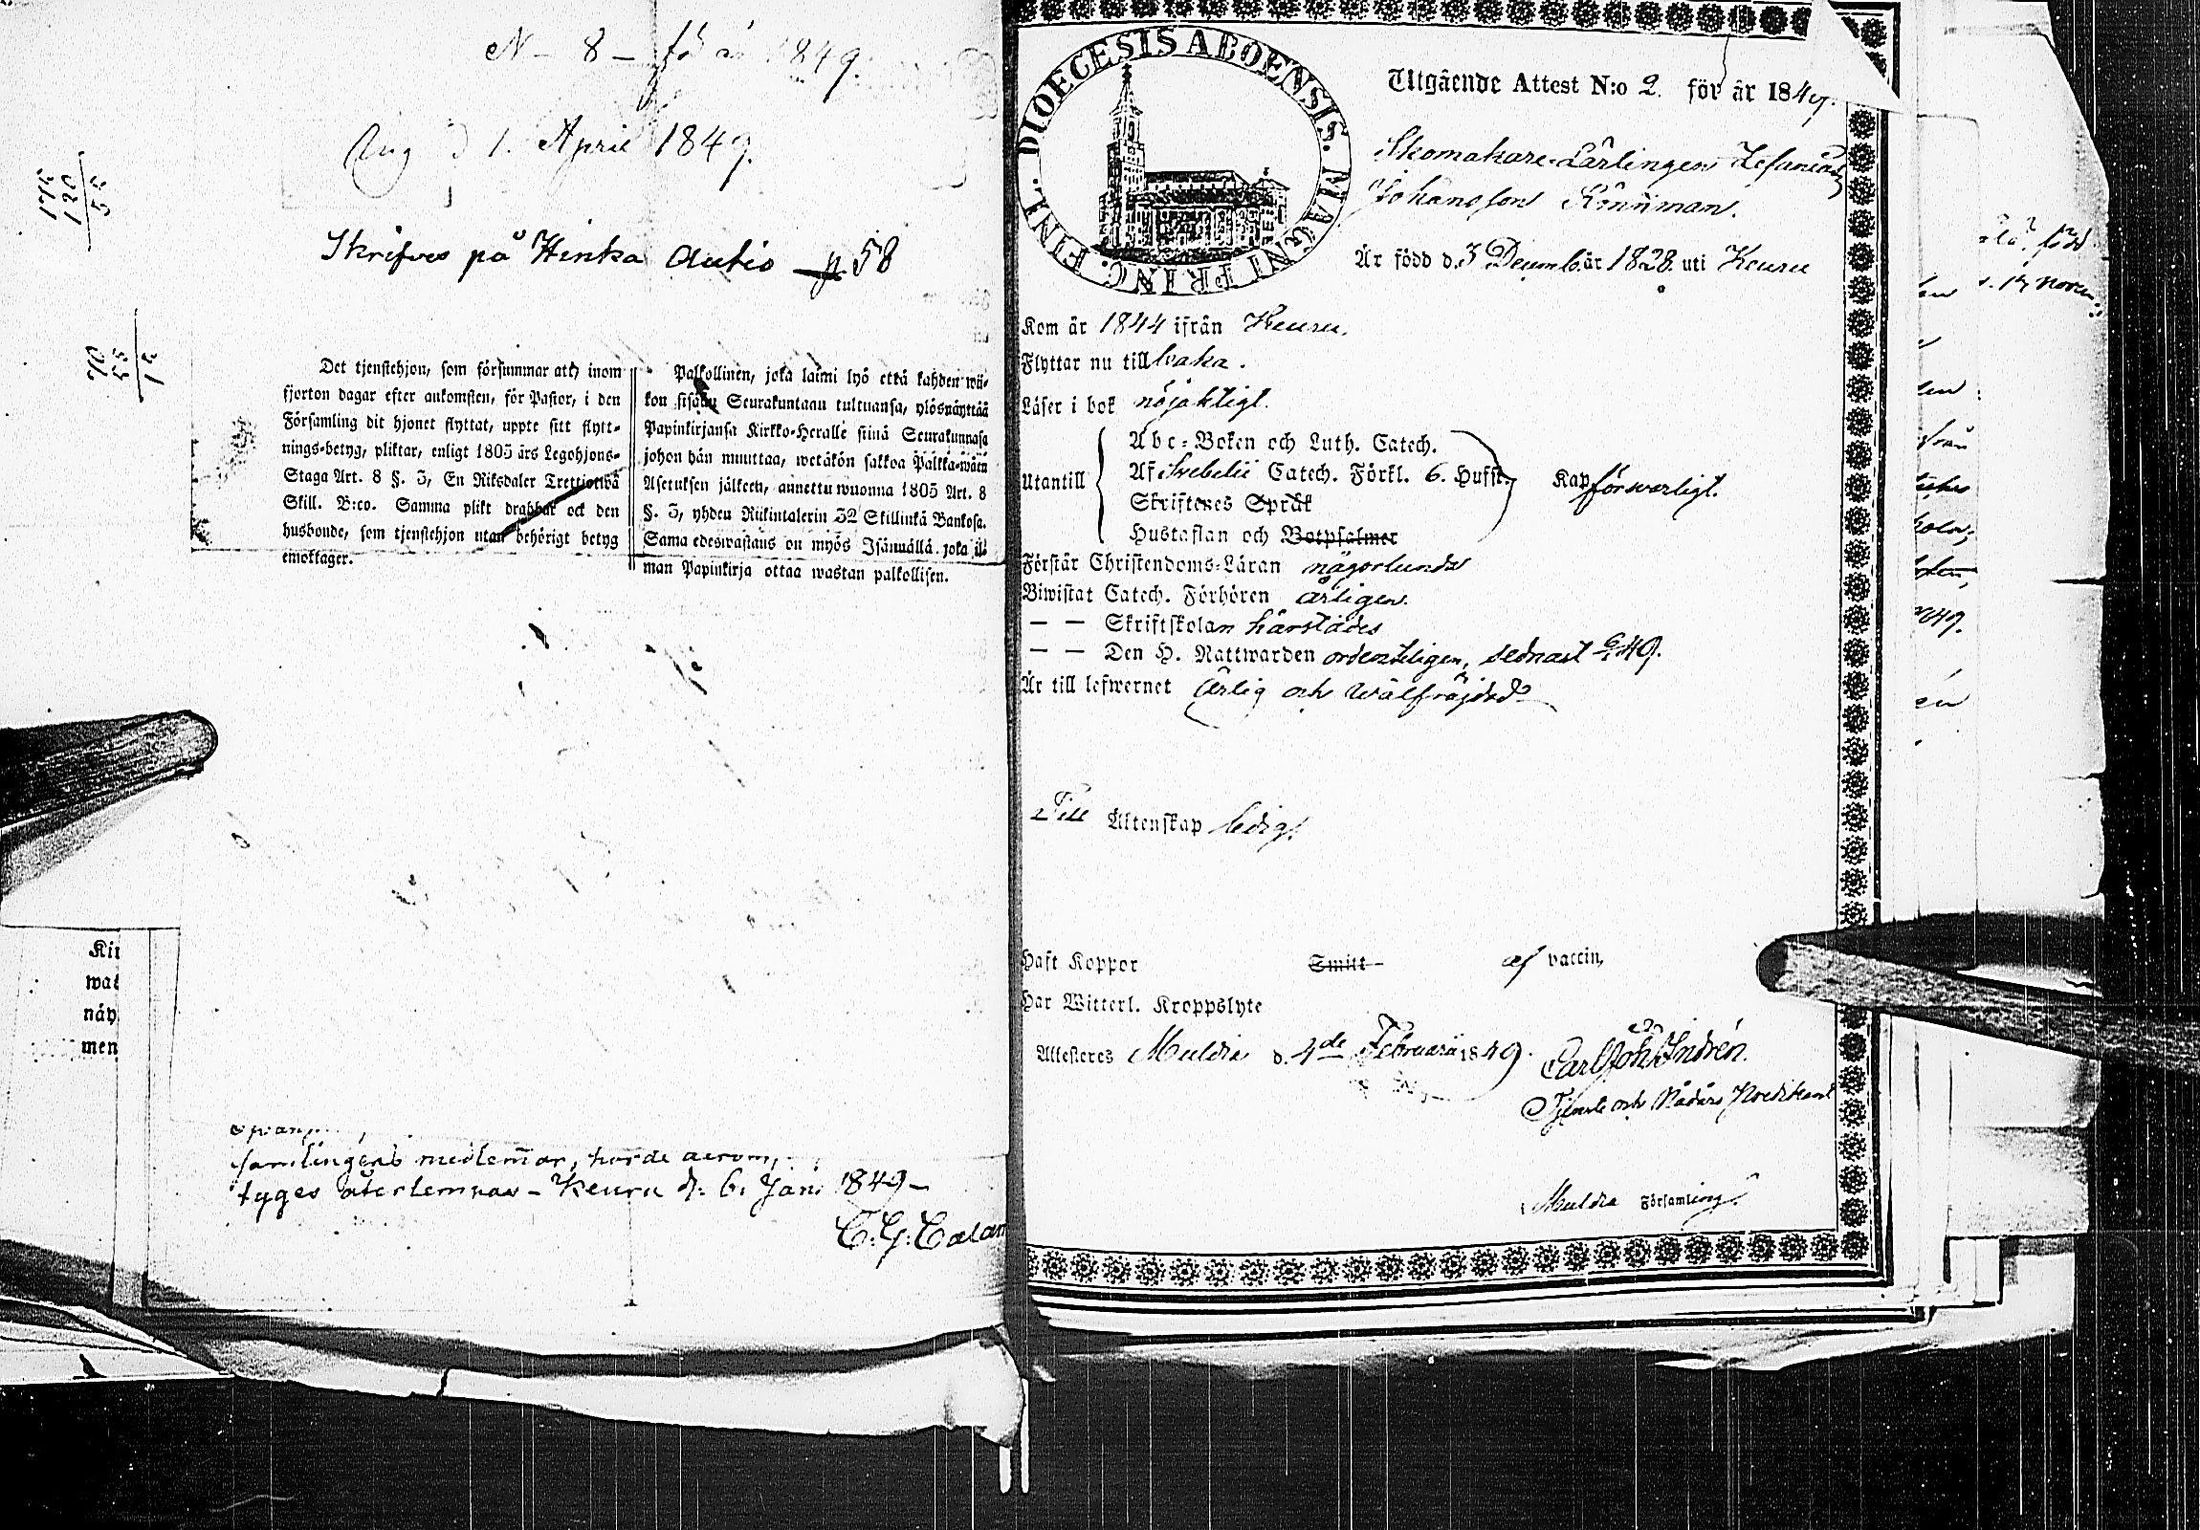 N 8 för år 1849.
Ing d 1. April 1849.
Skrifves på Hirska Autio p 58
175
120
55
Det tjenstehjon, som försummar att, inom
fjorton dagar efter ankomsten, för Pastor, i den
Församling dit hjonet flyttat, uppte sitt flytt-
nings-betyg, pliktar, enligt 1805 års Legohjons-
Staga Art. 8 §. 3, En Riksdaler Trettiotwå
Skill. B:co. Samma plikt drabbar ock den
husbonde, som tjenstehjon utan behörigt betyg
emottager.
Palkollinen, joka laimi lyö että kahden wii-
kon sisään Seurakuntaan tultuansa, ylösnäyttää
Papinkirjansa Kirkko-Heralle siinä Seurakunnasa
johon hän muuttaa, wetäkön sakkoa Palkka-wäen
Asetuksen jälkeen, annettu wuonna 1805 Art. 8
§. 3, yhden Riikintalerin 32 Skillinkiä Bankosa.
Sama edeswastaus on myös Isännällä joka il-
man Papinkirja ottaa wastan palkollisen.
Kir
wat
näy
men
samlingens medlemmar, horde
tyges återlemnas - Keuru d. 6. Jan. 1849 -
C. G. Calam
DIOECESIS ABOENSIS. MAGNI PRINC. FINL.
Utgående Attest N:o 2. för år 1849.
Skomakare-Lärlingen Zefanias
Johansson Rönnman.
Är född d. 3 Decemb. år 1828. uti Keuru
Kom år 1844 ifrån Keuru.
Flyttar nu tillbaka.
Läser i bok nöjaktigt.
Utantill
Abc-Boken och Luth. Catech.
Af Svebelii Catech. Förkl. 6. Hufst.
Skriftenes Språk
Hustaflan och Botpsalmer
Kap försvarligt.
Förstår Christendoms-Läran någorlunda
Biwistat Catech. Förhören årligen.
— — Skriftskolan härstädes
— — Den H. Nattwarden ordenteligen, sednast 49.
Är till lefwernet Ärlig och wälfräjdad
Till Äktenskap ledig.
Haft Koppor Smitt af vaccin,
Har Witterl. Kroppslyte
Attesteres Muldia d. 4de Februarii 1849. Carl Joh. Indrén.
Tjenst och Nådårs Predikant
Muldia Församling.
född
49.